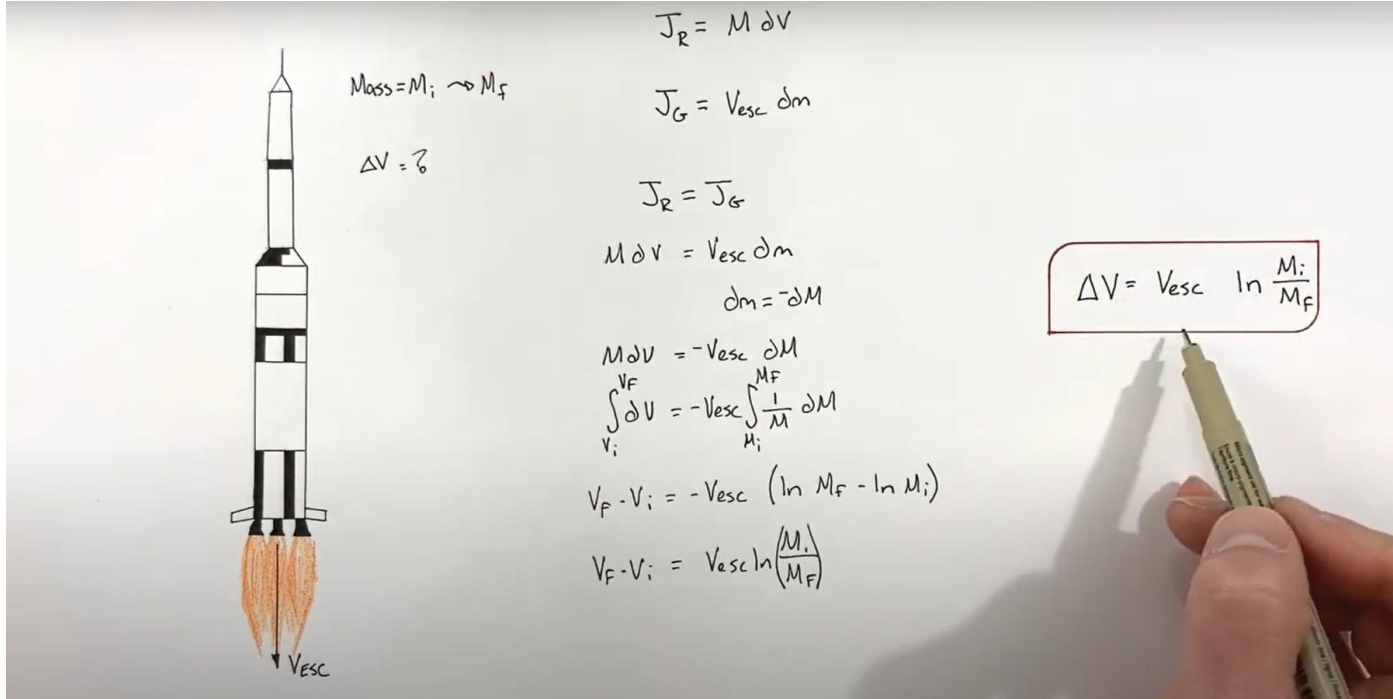 Mass = Mᵢ ⤳ M_f
ΔV = ?
V_ESC
J_R = M dV
J_G = V_esc dm
J_R = J_G
M dV = V_esc dm
dm = -dM
M dV = -V_esc dM
∫_{Vᵢ}^{V_F} dV = -V_esc ∫_{Mᵢ}^{M_F} 1/M dM
V_F - Vᵢ = -V_esc (ln M_F - ln Mᵢ)
V_F - Vᵢ = V_esc ln(Mᵢ/M_F)
ΔV = V_esc ln Mᵢ/M_F